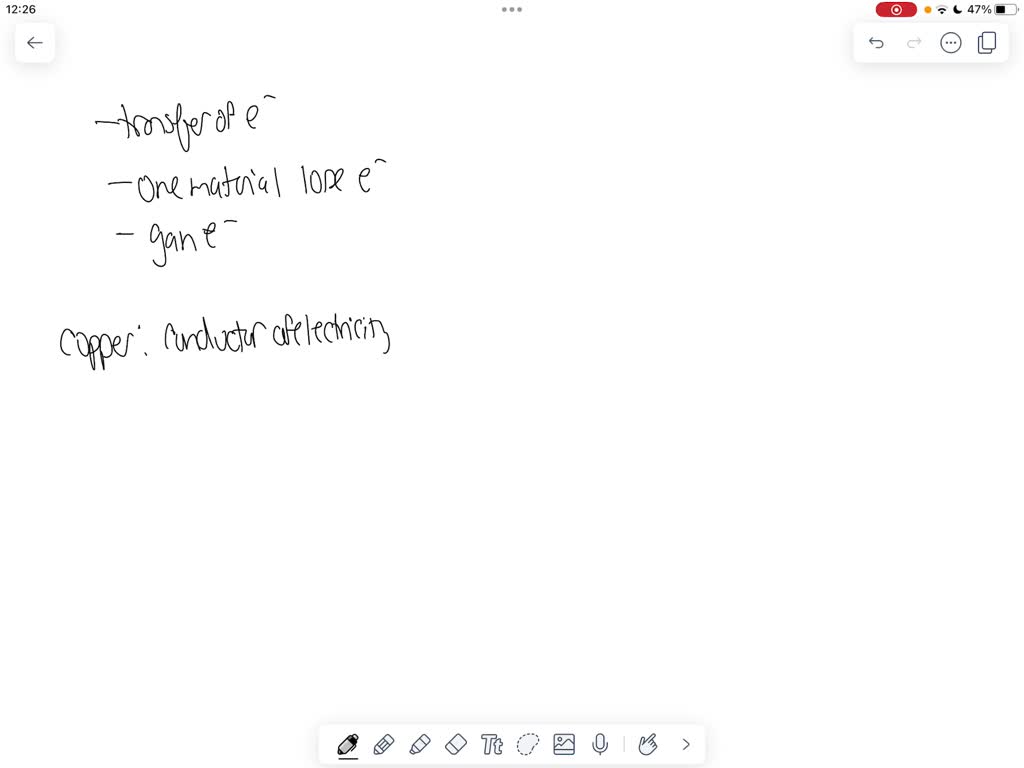 12:26
47%
- transfer of e⁻
- one material lose e⁻
- gan e⁻
copper: conductor of electricity
Tt